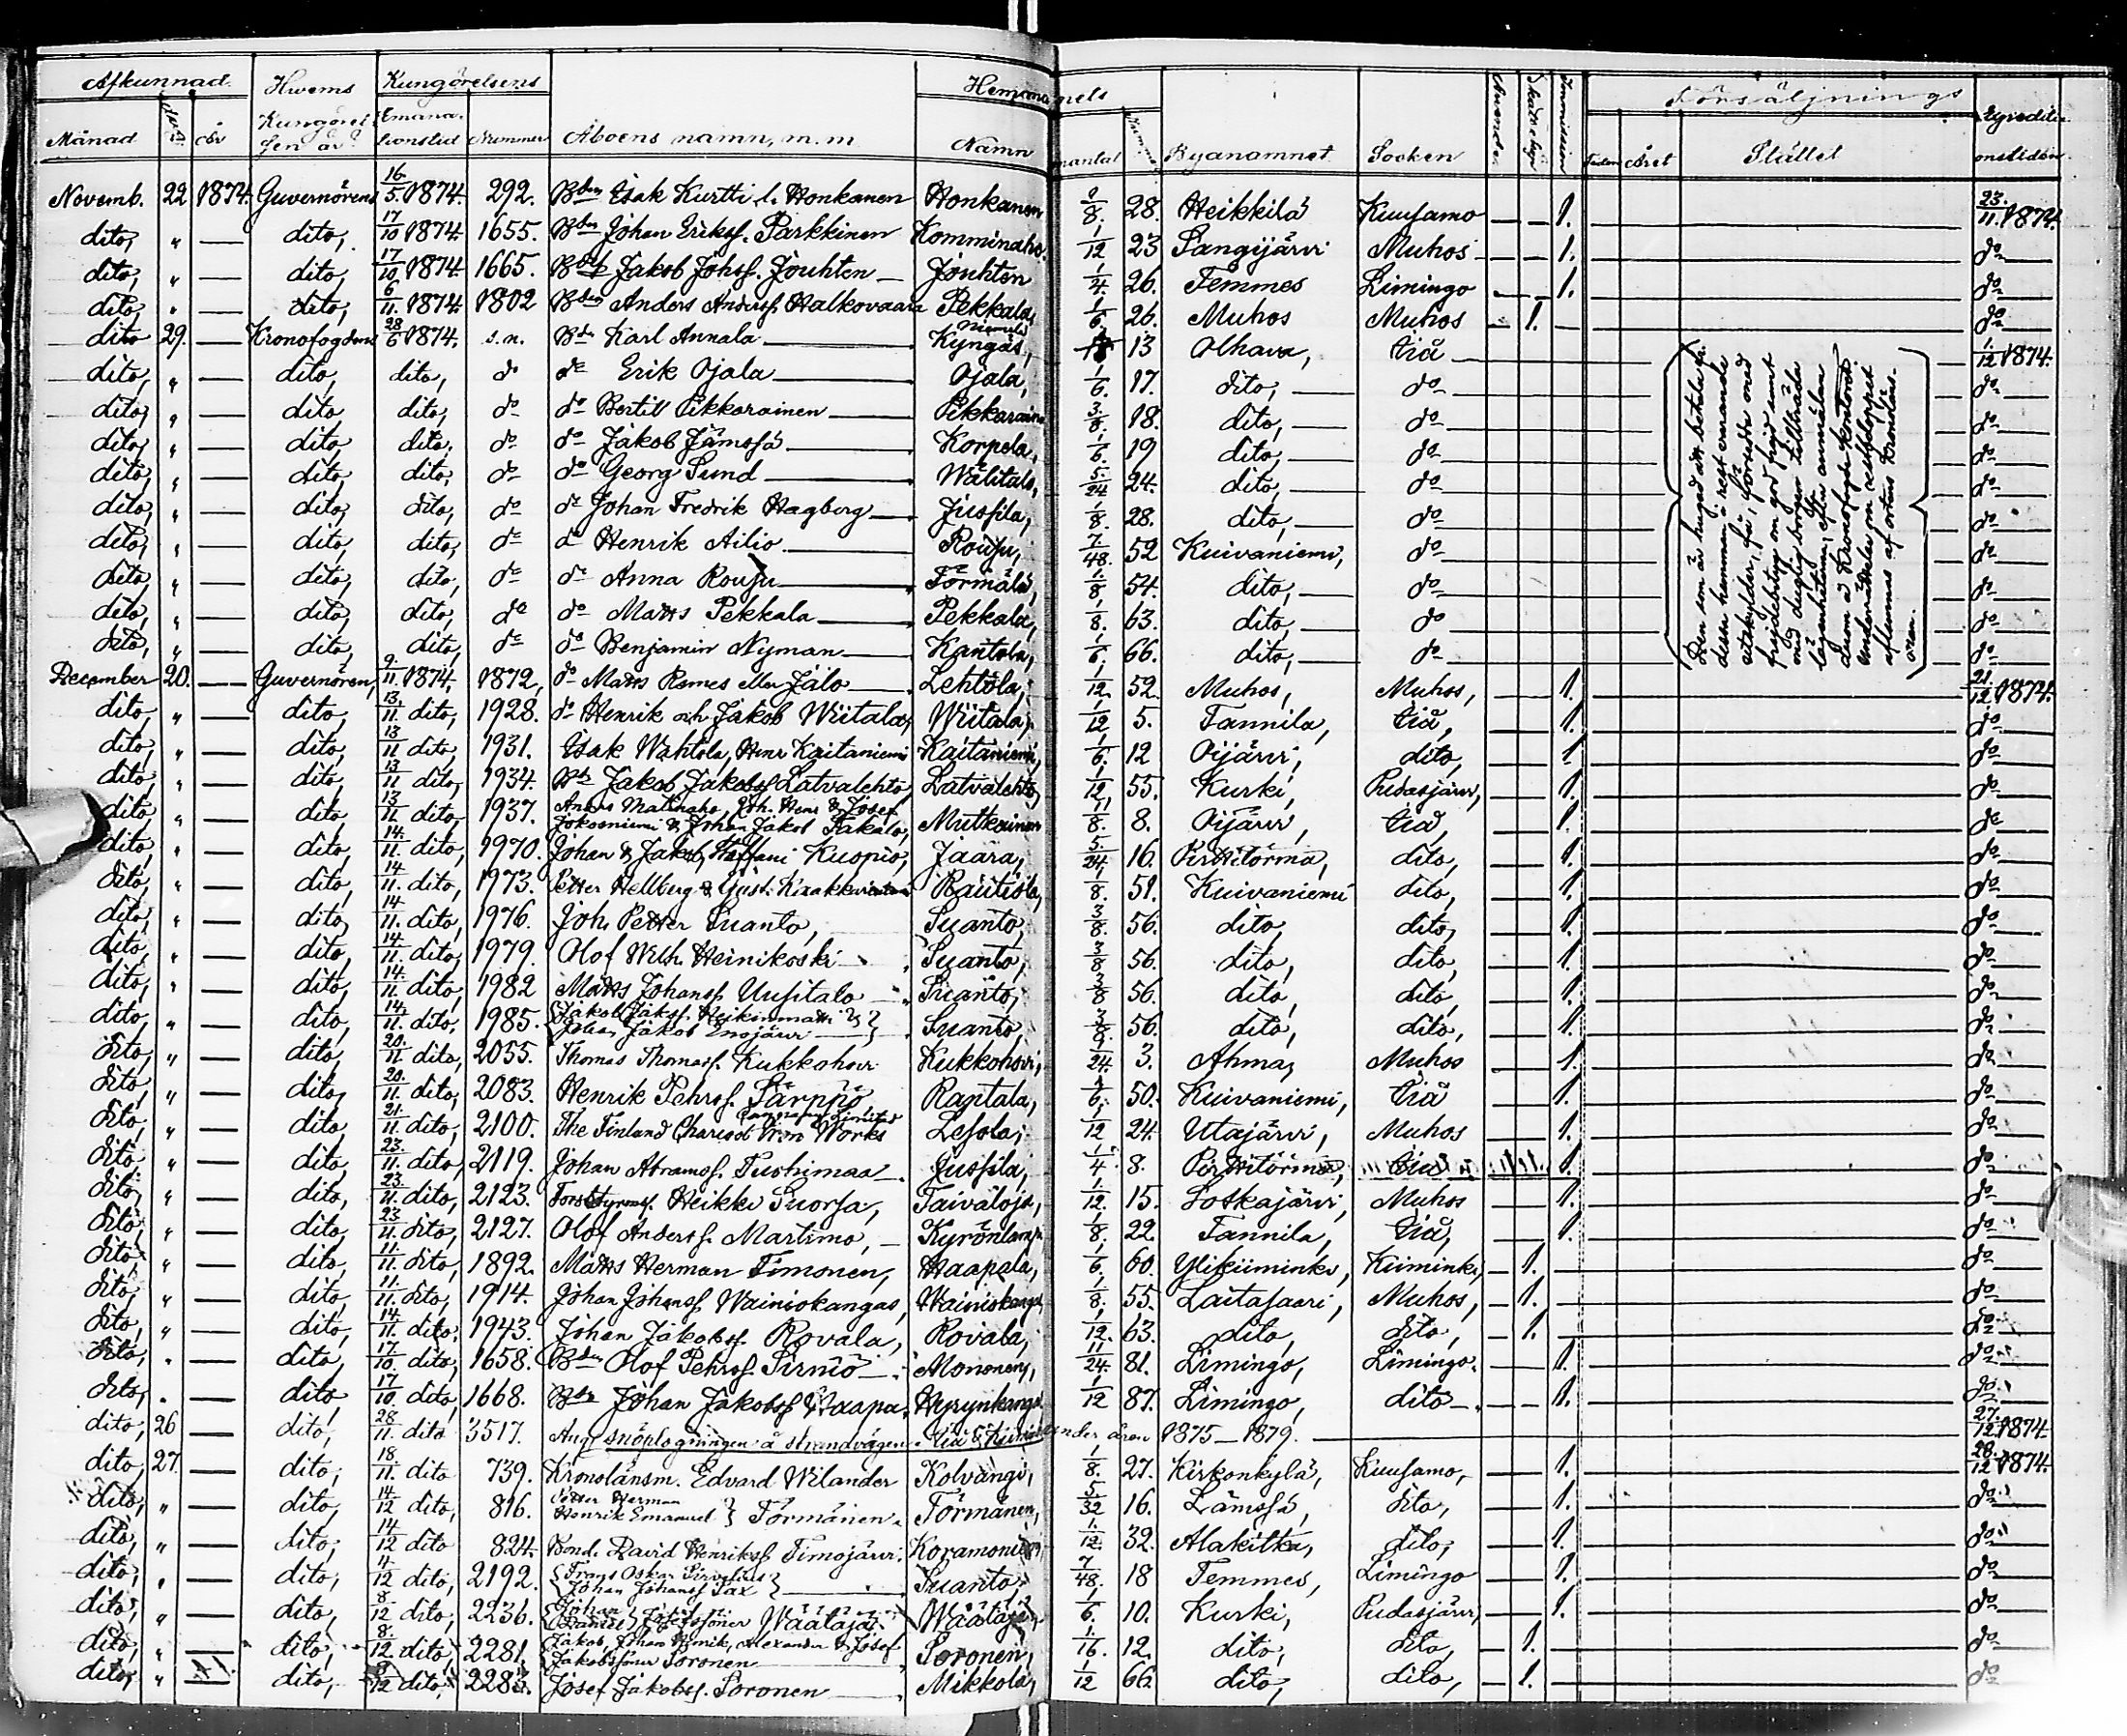 Afkunnad. Hwems Kungörelsens Hemmanets Försäljnings Expediti-
Månad Dag År Kungörel- Emana- Nummer Åboens namn, m.m. Namn mantal Nummer Byanamnet Socken Skatteköp Immission Tiden Året Stället onstiden.
sen är? tionstid
Novemb. 22 1874. Guvernörens 16/5. 1874. 292. Bdn Esak Kurtti l. Honkanen Honkanen 2/8. 28. Heikkilä Kuusamo — — 1. 23/11. 1874.
dito, " — dito, 17/10 1874. 1655. Bdn Johan Erikss. Parkkinen Komminaho. 1/12 23 Sangijärvi Muhos — — 1. do
dito, " — dito, 17/10. 1874. 1665. Jakob Johss. Jouhten — Jouhten 1/4 26. Temmes Limingo — — 1. do
dito, " — dito, 6/11. 1874. 1802 Bdn Anders Anderss. Halkovaara Pekkala, 1/6. 26. Muhos Muhos — 1. — do
dito 29. — Kronofogdens 28/6 1874. s.n. Bdn Karl Annala — Kyngäs, 13 Olhava, Iiå — 1/12 1874.
dito, " — dito, dito, do do Erik Ojala — Ojala, 1/6. 17. dito, — do — do
dito, " — dito dito, do do Bertil Pikkarainen — Pikkarainen 3/8. 18. dito, — do — do
dito, " — dito, dito. do do Jakob Jämssä — Korpela, 1/6. 19 dito, — do — do
dito, " — dito, dito, do do Georg Sund — Wälitalo, 5/24 24. dito, — do — do
dito, " — dito, dito, do do Johan Fredrik Hagberg — Jussila, 1/8. 28. dito, — do — do
dito, " — dito, dito, do do Henrik Ailio. — Rousu, 7/48. 52 Kuivaniemi, do — do
dito, " — dito, dito, do do Anna Rousu — Törmälä, 1/8 54. dito, — do — do
dito, " — dito, dito, do do Matts Pekkala — Pekkala, 1/8. 63. dito, — do — do
dito, " — dito, dito, do do Benjamin Nyman — Kantola, 1/6. 66. dito, — do — do
Den som är hugad att
desse hemman, i rest varande
utskylder, få, försedde med
frejdebetyg om god frejd samt
med duglig borgen tillträda
lägenheterna, efter anmälan
derom å Kronofogde Kontoret.
Underrättelse om restbeloppet
aflemnas af ortens Kronolän.
December 20. — Guvernören, 9/11. 1874, 1872, do Matts Remes eller Jalo — Lehtola, 1/12. 52. Muhos, Muhos, — 1. 21/12. 1874.
dito, " — dito, 13/11. dito, 1928. do Henrik och Jakob Wiitala, Wiitala, 1/12 5. Tannila, Iiå, — 1. do
dito, " — dito, 13/11 dito, 1931. Esak Wahtola, Henr Kaitaniemi Kaitaniemi, 1/6. 12 Oijärvi, dito, — 1 do
dito " — dito, 13/11 dito, 1934. Bdn Jakob Jakobss Latvalehto, Latvalehto, 1/12 55. Kurki, Pudasjärvi, — 1. do
dito " — dito, 13/11 dito, 1937. Anders Matinaho, Joh. Henr & Josef Jokooniemi & Johan Jakob Takalo, Mutkainen 11/8. 8. Oijärvi, Iiå, — 1. do
dito, " — dito, 14/11. dito, 1970. Johan & Jakob Staffani Kuopio, Jaara, 5/24 16. Pirttitörmä, dito, — 1. do
dito, " — dito, 14/11. dito, 1973. Petter Hellberg & Gust. Kaakkurinen Rautiola, 1/8. 51. Kuivaniemi dito, — 1. do
dito, " — dito, 14/11. dito, 1976. Joh. Petter Suanto, Suanto, 3/8. 56. dito, dito, — 1. do
dito, " — dito, 14/11. dito, 1979. Olof Wilh. Heinikoski — Suanto, 3/8 56. dito, dito, — 1. do
dito, " — dito, 14/11. dito, 1982 Matts Johanss. Uusitalo — Suanto, 3/8 56. dito, dito, — 1. do
dito, " — dito, 14/11. dito, 1985. Jakob Jakss. Heikinmatti Johan Jakob Enojärvi — Suanto, 3/8. 56. dito, dito, — 1. do
dito, " — dito, 20/11 dito, 2055. Thomas Thomass. Kukkohovi Kukkohovi, 9/24. 3. Ahmas, Muhos — 1. do
dito, " — dito, 20/11. dito, 2083. Henrik Pehrss. Särppö Rapitala, 1/6. 50. Kuivaniemi, Iiå — 1. do
dito, " — dito 21/11. dito, 2100. The Finland Charcoal Iron Works Company Limited Lesola, 1/12 24. Utajärvi, Muhos — 1. do
dito, " — dito, 23/11. dito, 2119. Johan Abramss. Tuohimaa —. Jussila, 1/4 8. Pirttitörmä, Iiå — 1. do
dito, " — dito, 23/11. dito, 2123. Heikki Suorsa, Taivaloja, 1/12. 15. Sotkajärvi, Muhos — 1. do
dito, " — dito, 23/11. dito, 2127. Olof Anderss. Martimo, — Kyrönlampi 1/8. 22. Tannila, Iiå, — 1. do
dito, " — dito, 11/11. dito, 1892. Matts Herman Timonen, Haapala, 1/6 60. Ylikiiminki, Kiiminki, — 1. — do
dito, " — dito, 11/11. dito, 1914. Johan Johanss Wainiokangas, Wainiokangas 1/8. 55. Laitasaari, Muhos, — 1. — do
dito, " — dito, 14/11. dito, 1943. Johan Jakobss. Rovala, Rovala, 1/12. 63. dito, dito, — 1. — do
dito, " — dito, 17/10. dito, 1658. Bdn Olof Pehrss. Sirniö —. Mononen, 11/24. 81. Limingo, Limingo. — 1. do
dito, " — dito 17/10. dito, 1668. Bdn Johan Jakobss Haapa, Hyrynkangas 1/12 87. Limingo, dito —. — 1. do
dito, 26 — dito, 28/11. dito 3517. Ang. snöplogningen å strandvägen Iiå & Kiiminki under åren 1875—1879. — 27/12 1874
dito, 27. — dito, 18/11. dito 739. Kronolänsm. Edvard Wilander Kolvangi, 1/8. 27. Kirkonkylä, Kuusamo, — 1. 28/12 1874.
dito, " — dito, 14/12 dito, 816. Petter Herman Henrik Emanuel } Törmänen. Törmänen, 5/32 16. Lämssä, dito, — 1. do
dito, " — dito, 14/12 dito 824. Bond. David Henrikss Timojärvi. Koramoniemi 1/12. 32. Alakitka, dito, — 1. do
dito, " — dito, 4/12 dito, 2192. Frans Oskar Sirvelius Johan Johanss Sax } — Suanto, 7/48. 18 Temmes, Limingo — 1. do
dito, " — dito, 8/12 dito, 2236. Johan Daniel } Jakobssöner Wäätäjä. Wäätäjä, 1/6. 10. Kurki, Pudasjärvi, — 1. do
dito, " — dito, 8/12. dito, 2281. Jakob, Johan Henrik, Alexander & Josef Jakobssöner Soronen — Soronen, 1/16. 12. dito, dito, — 1. do
dito, " — dito, 8/12 dito, 2283. Josef Jakobss. Soronen — Mikkola, 1/12 66. dito, dito, — 1. do